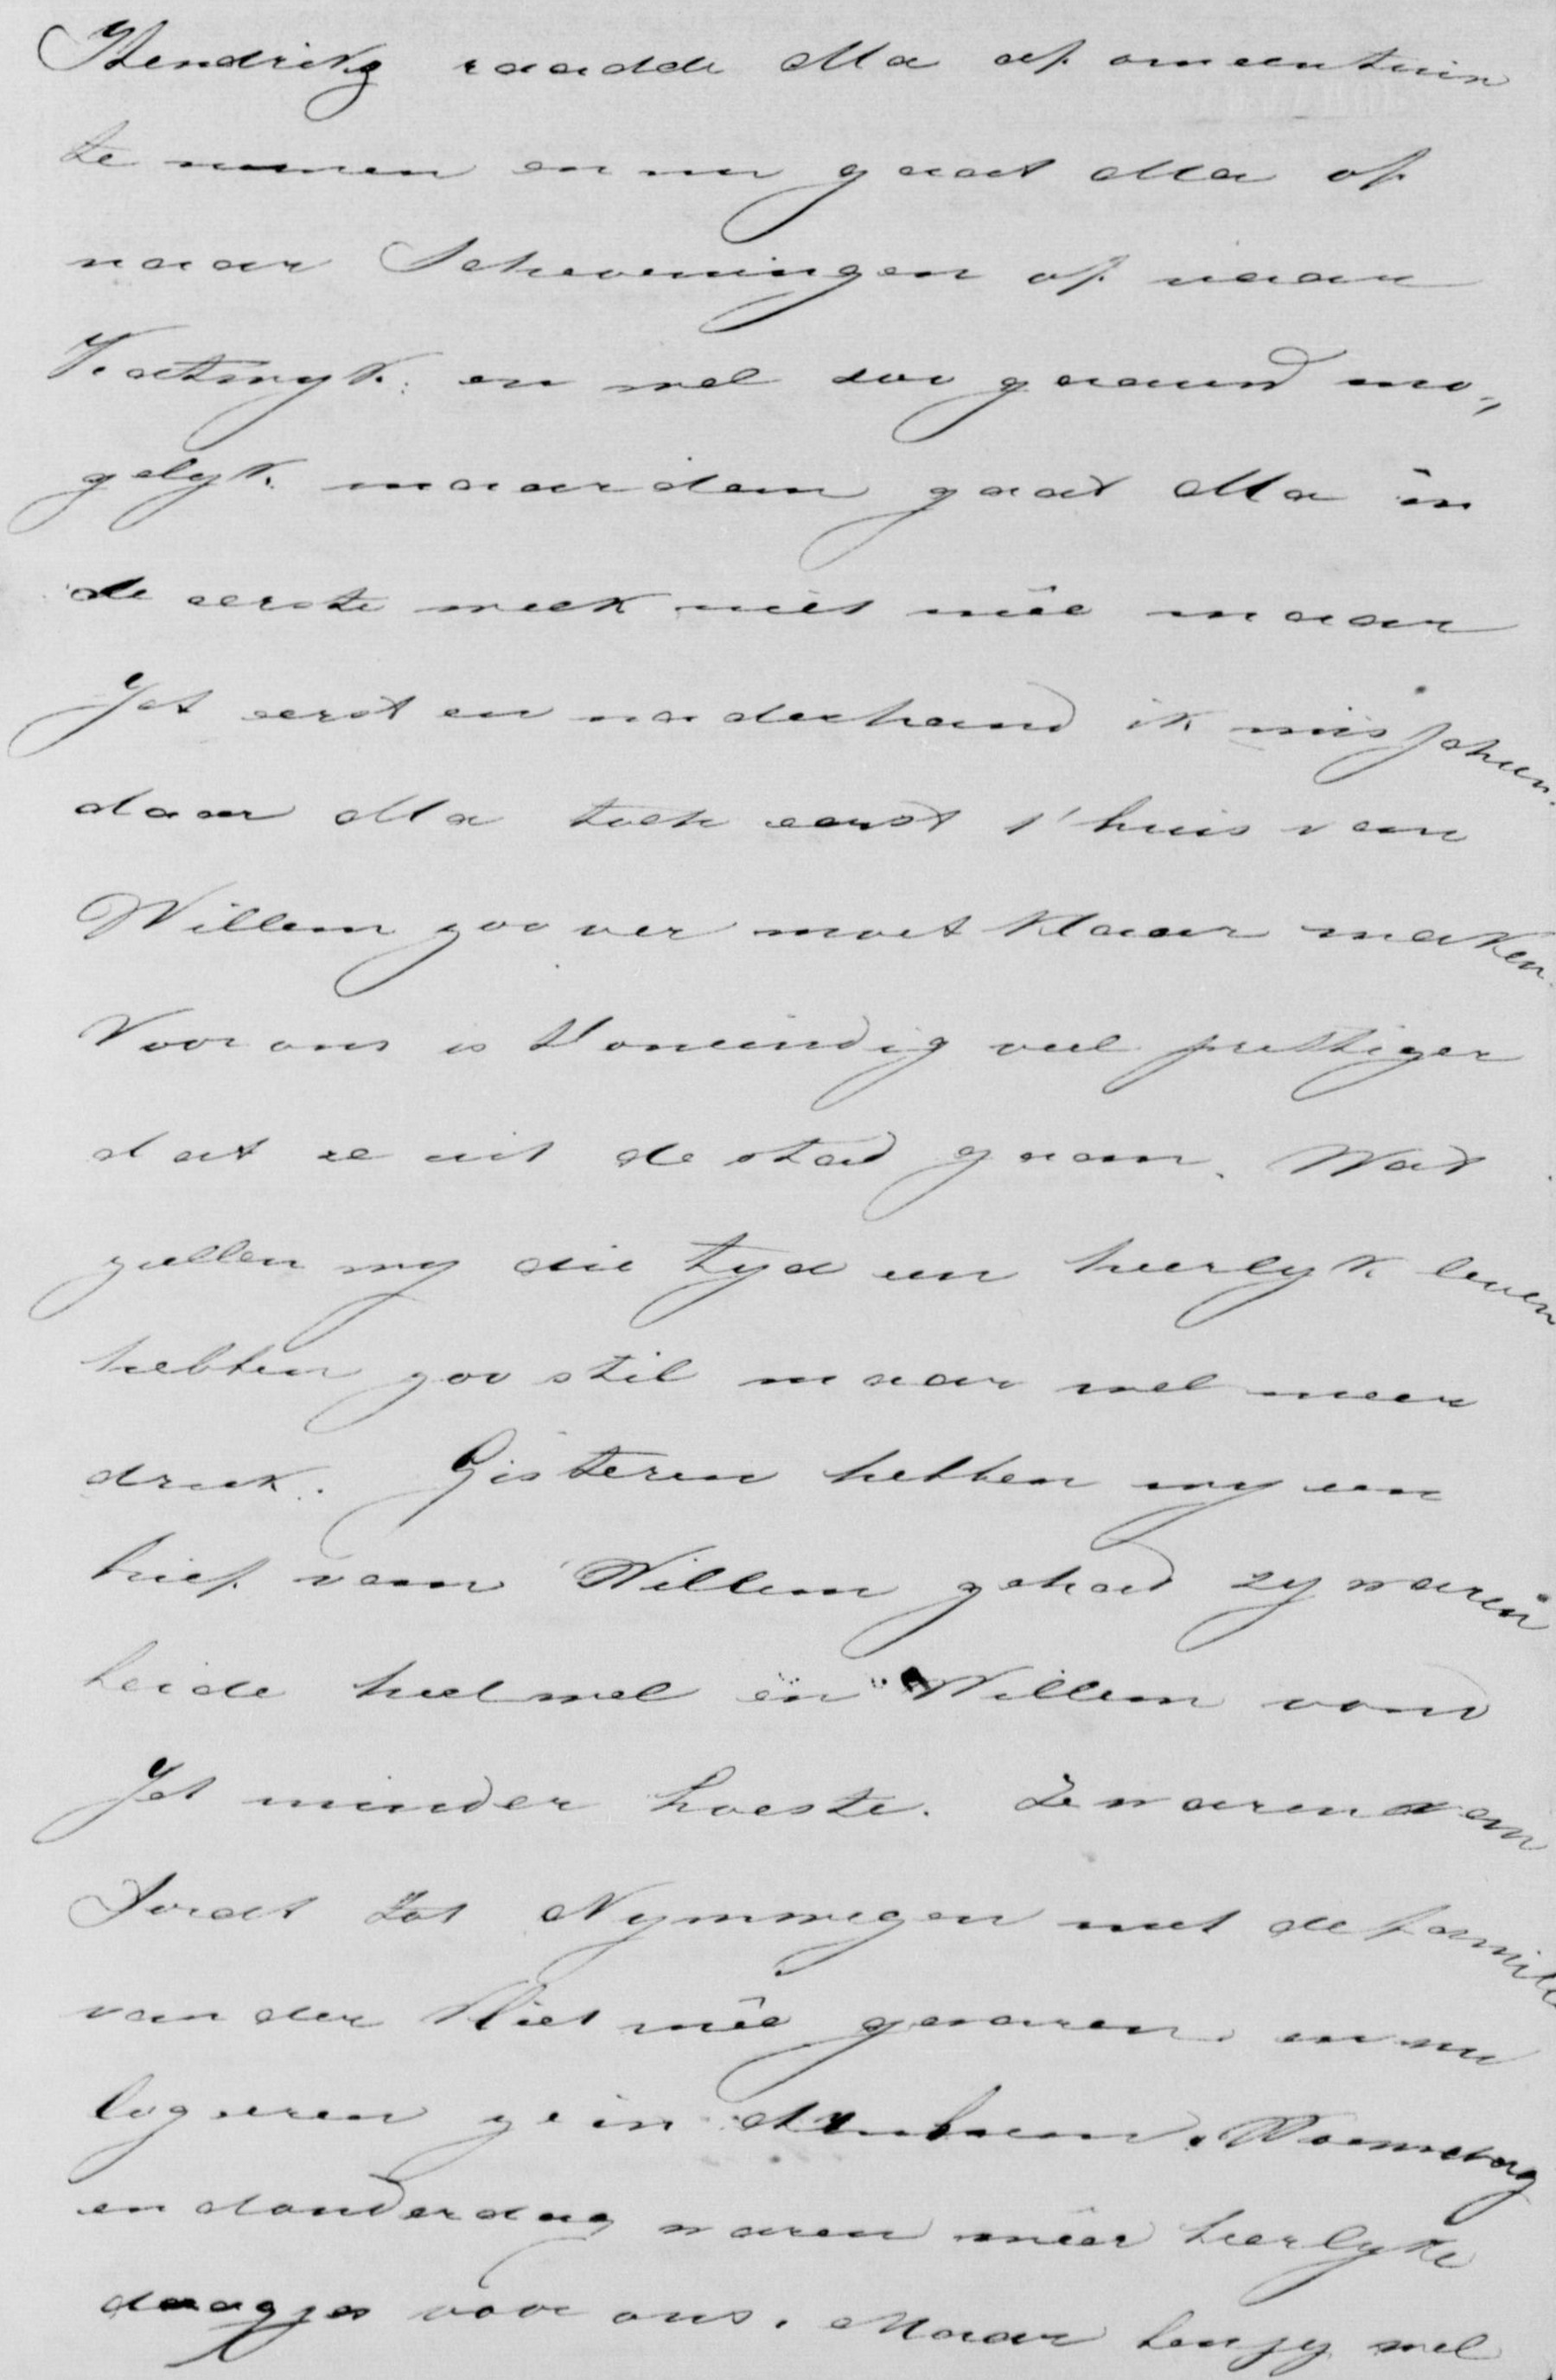 Hendrikz raadde Ma af om een tuin
te nemen en nu gaat Ma of
naar Scheveningen of naar
Katwyk. en wel zoo gaauw mo„
gelyk. maar dan gaat Ma in
de eerste week niet mêe maar
Jet eerst en naderhand ik misschien.
daar Ma toch eerst 't huis van
Willem zoo ver moet klaar maken.
Voor ons is 't oneindig veel prettiger
dat ze uit de stad gaan. Wat
zullen wy die tyd een heerlyk leven
hebben zoo stil maar wel meer
druk. Gisteren hebben wy een
brief van Willem gehad zy waren
beide heel wel en Willem vond
Jet minder hoeste. Ze waren van
Dordt tot Nymwegen met de familie
van der Vliet mêe gevaren. en nu
logeeren ze in Arnhem. Woensdag
en donderdag waren mêer heerlyke
daagjes voor ons. Maar ben jy wel